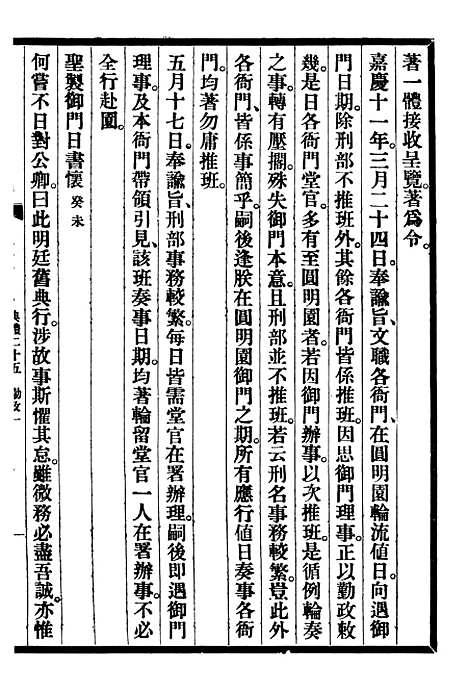 著一體接收呈覽。著爲令。
嘉慶十一年。三月二十四日。奉諭旨、文職各衙門、在圓明園輪流值日。向遇御
門日期。除刑部不推班外。其餘各衙門皆係推班。因思御門理事。正以勤政敕
幾。是日各衙門堂官。多有至圓明園者。若因御門辦事。以次推班。是循例輪奏
之事。轉有壓擱。殊失御門本意。且刑部並不推班。若云刑名事務較繁。豈此外
各衙門、皆係事簡乎。嗣後逢朕在圓明園御門之期。所有應行值日奏事各衙
門。均著勿庸推班。
五月十七日。奉諭旨、刑部事務較繁。每日皆需堂官在署辦理。嗣後即遇御門
理事。及本衙門帶領引見、該班奏事日期。均著輪留堂官一人在署辦事。不必
全行赴園。
聖製御門日書懷 癸未
何嘗不日對公卿。曰此明廷舊典行。涉故事斯懼其怠。雖微務必盡吾誠。亦惟
典禮二十五 勤政一
一